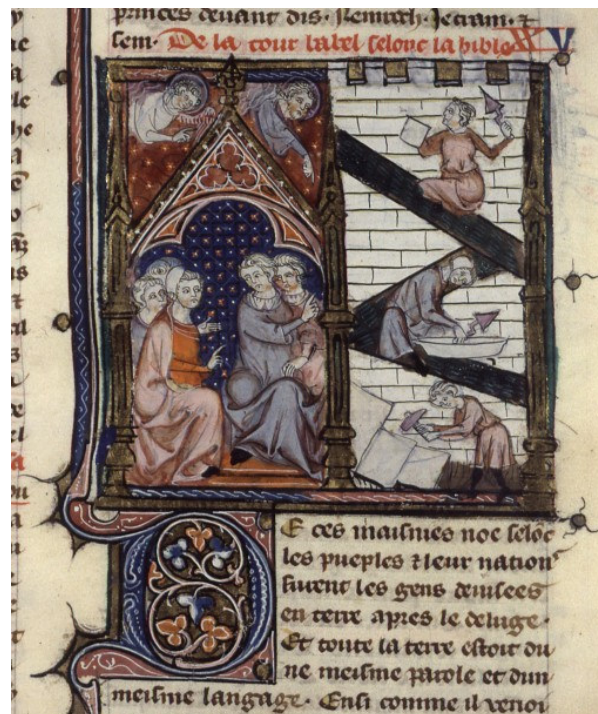 princes deuant dis. Nemroth. Jectram. ⁊
sem. De la tour babel selonc la bible XV
E ces maismes noe selōc
les pueples ⁊ leur nation
furent les gens deuisees
en terre apres le deluge.
Et toute la terre estoit du
ne meisme parole et dun
meisme langage. Ensi comme il venoi